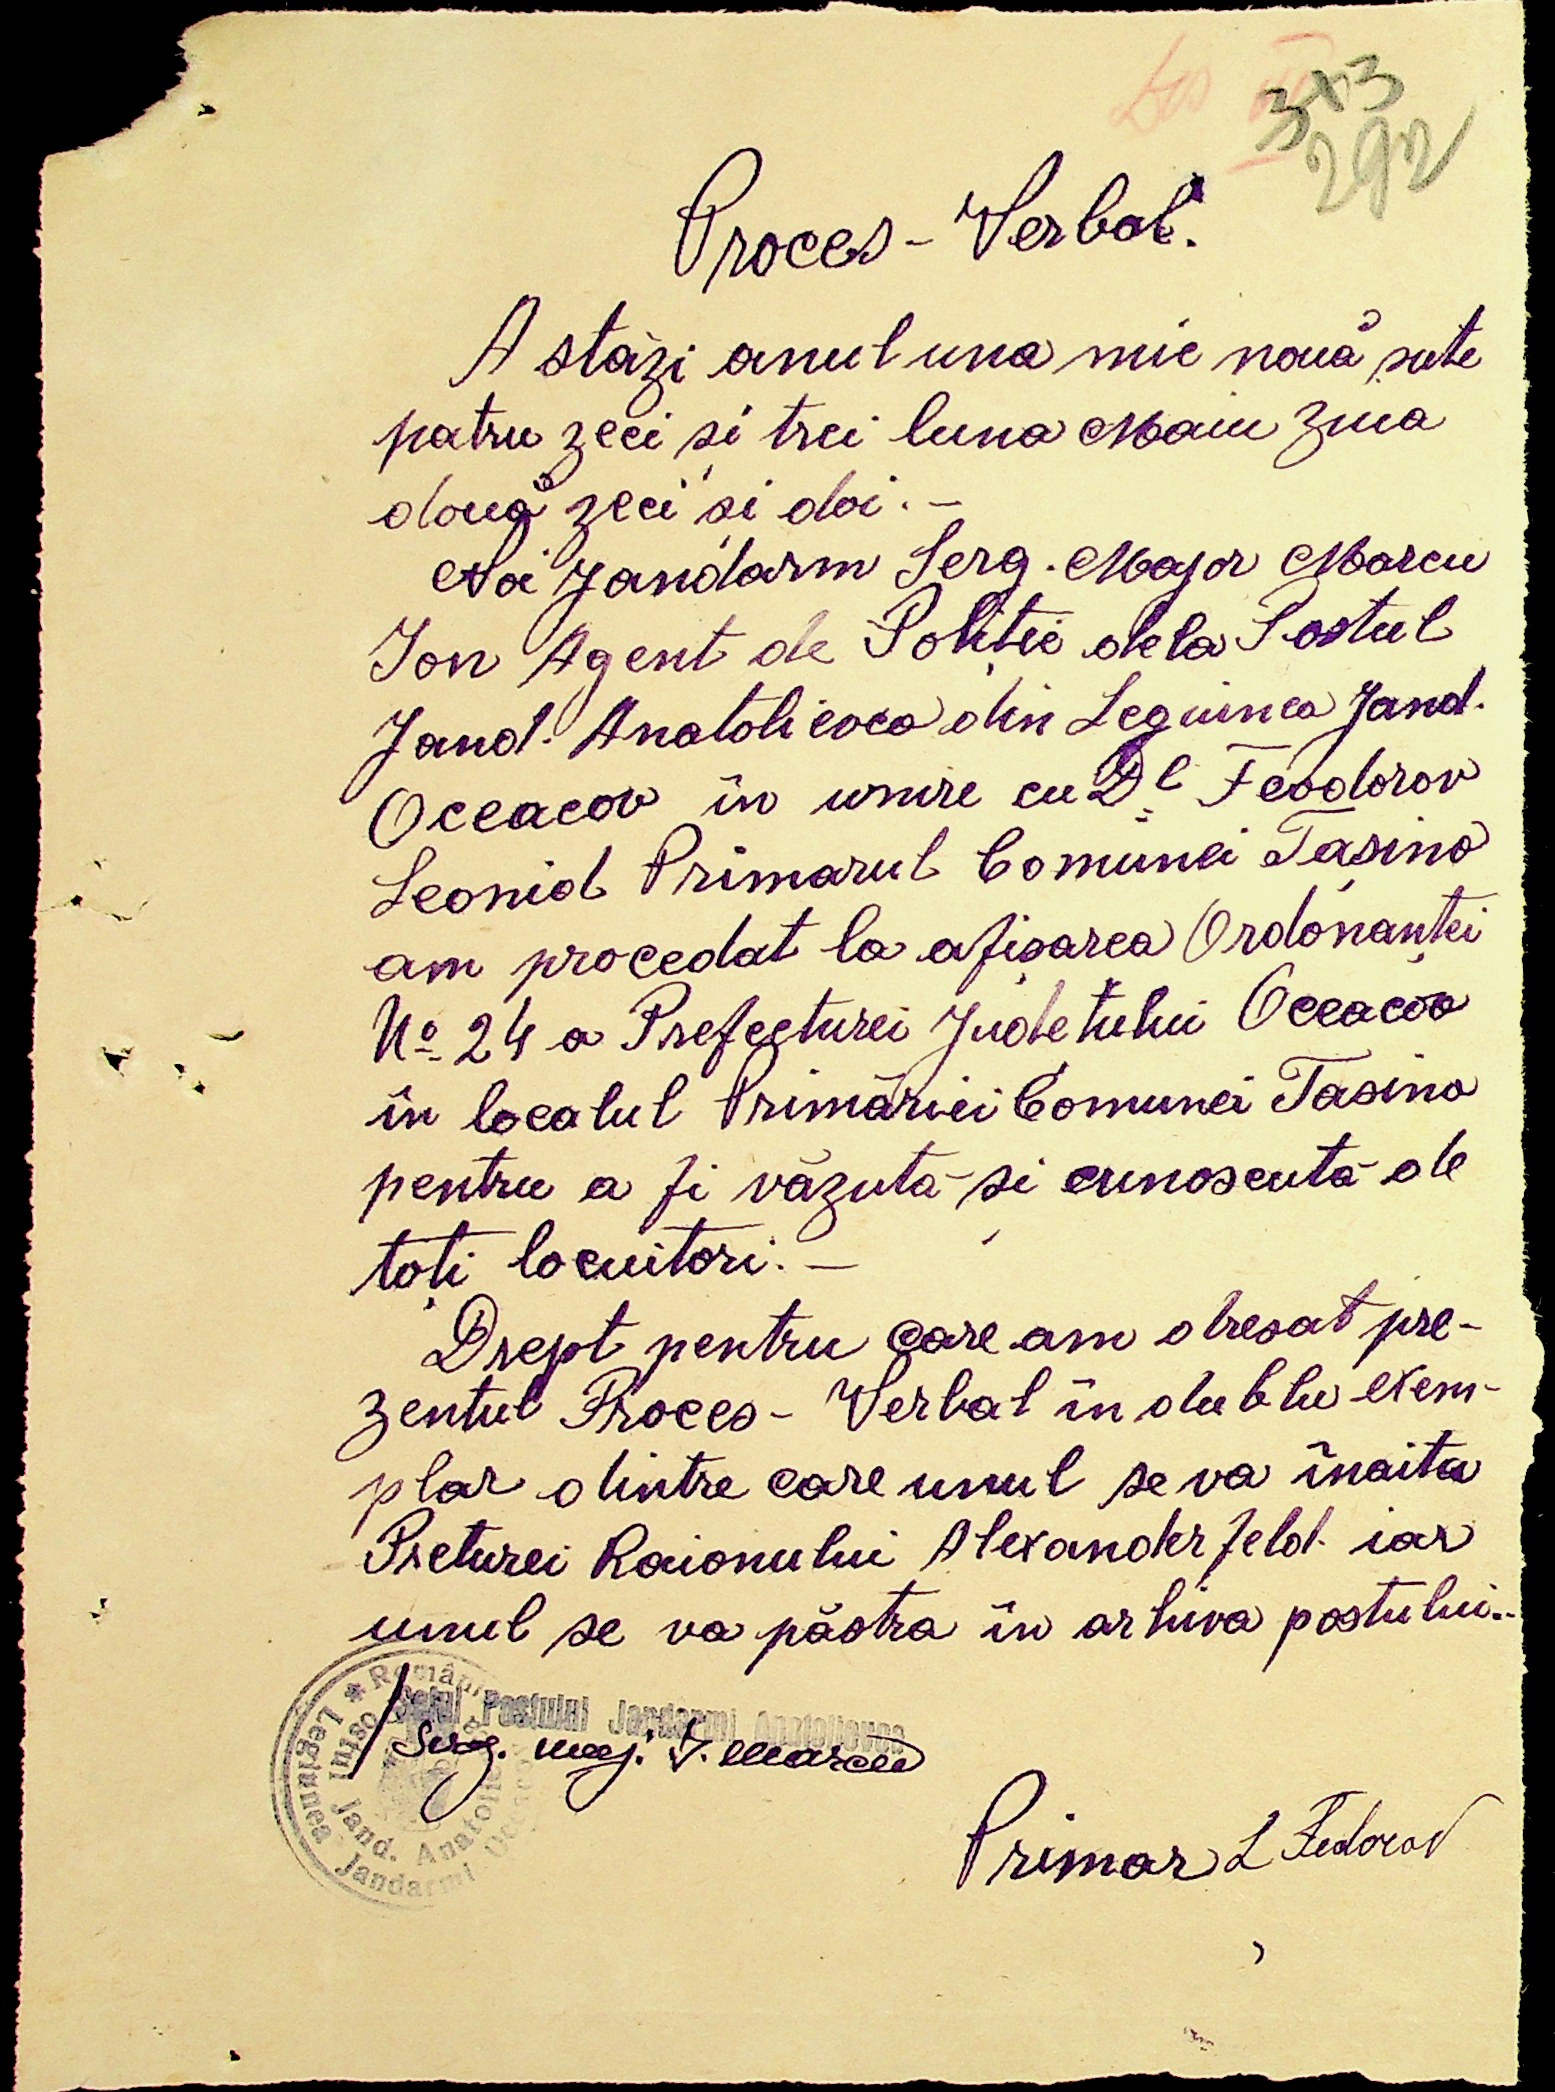 3x3
292
Proces-Verbal.
Astăzi anul una mie nouă sute
patru zeci și trei luna Maiu ziua
două zeci și doi.-
Noi Jandarm Serg. Major Marcu
Ion Agent de Poliție dela Postul
Jand. Anatolievca din Legiunea Jand.
Oceacov în unire cu Dl Feodorov
Leonid Primarul Comunei Tașino
am procedat la afișarea Ordonanței
No 24 a Prefecturei Județului Oceacov
în localul Primăriei Comunei Tasino
pentru a fi văzută și cunoscută de
toți locuitori.-
Drept pentru care am dresat pre-
zentul Proces-Verbal în dublu exem-
plar dintre care unul se va înaita
Preturei Raionului Alexanderfeld iar
unul se va păstra în arhiva postului.-
Șeful Postului Jandarmi Anatolievca
Serg. maj. I. Marcu
Legiunea Jandarmi Oceacov
Postul Jand. Anatolievca
Primar L Fedorov